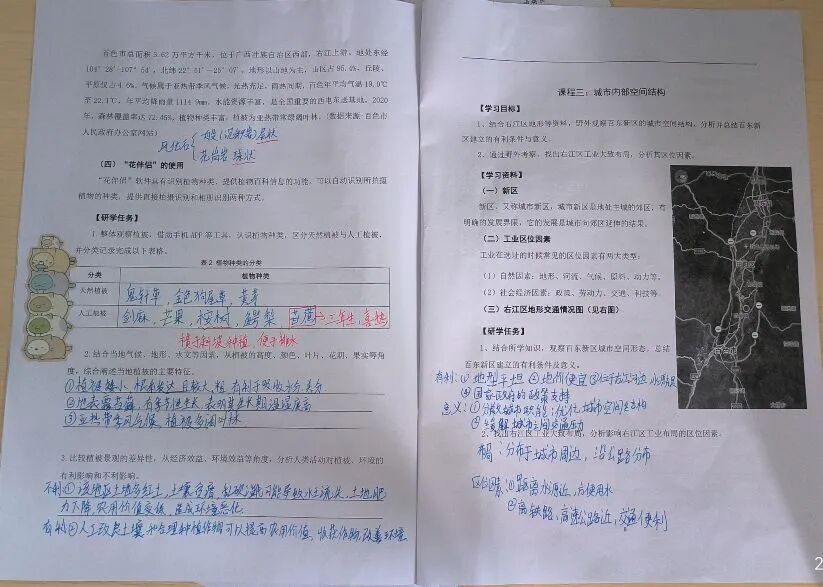 百色市总面积 3.62 万平方千米，位于广西壮族自治区西部，右江上游，地处东经
104°28′-107°54′，北纬 22°51′-25°07′，地形以山地为主，山区占 95.4%，丘陵、
平原仅占 4.6%，气候属于亚热带季风气候，光热充足，雨热同期，百色年平均气温 19.0℃
至 22.1℃，年平均降雨量 1114.9mm，水能资源丰富，是全国重要的西电东送基地，2020
年，森林覆盖率达 72.45%，植物种类丰富，植被为亚热带常绿阔叶林。（数据来源：百色市
人民政府办公室网站）
层状
花岗岩 球状
（四）“花伴侣”的使用
“花伴侣”软件具有识别植物种类、提供植物百科信息的功能，可以自动识别所拍摄
植物的种类，提供直接拍摄识别和相册识别两种方式。
【研学任务】
1. 整体观察植被，借助手机 APP 等工具，认识植物种类，区分天然植被与人工植被，
并分类记录完成以下表格。
表 2 植物种类的分类
分类 植物种类
天然植被 鬼针草，金色狗尾草，黄茅
人工植被 剑麻，芒果，桉树，鳄梨，
植于斜坡种植，便于排水
2. 结合当地气候、地形、水文等因素，从植被的高度、颜色、叶片、花期、果实等角
度，综合阐述当地植被的主要特征。
①植被矮小，根系发达且较大，粗，有利于吸收水分，养分
③亚热带季风气候，植被多阔叶林
3. 比较植被景观的差异性，从经济效益、环境效益等角度，分析人类活动对植被、环境的
有利影响和不利影响。
不利：①该地区土地多红土，土壤贫瘠，乱砍乱伐可能导致水土流失，土地肥
力下降，农用价值变低，造成环境恶化
有利：②人工改良土壤，和合理种植作物可以提高农用价值，收获作物，改善环境
课程三：城市内部空间结构
【学习目标】
1、结合右江区地形等资料，野外观察百东新区的城市空间结构，分析并总结百东新
区建立的有利条件与意义。
2、通过野外考察，找出右江区工业大致布局，分析其区位因素。
【学习资料】
（一）新区
新区，又称城市新区，城市新区是地处主城的郊区，有
明确的发展界限，它的发展是城市向郊区延伸的结果。
（二）工业区位因素
工业在选址的时候常见的区位因素有两大类型：
（1）自然因素：地形、河流、气候、原料、动力等。
（2）社会经济因素：政策、劳动力、交通、科技等。
（三）右江区地形交通情况图（见右图）
【研学任务】
1、结合所学知识，观察百东新区城市空间形态，总结
百东新区建立的有利条件及意义。
有利：①地形平坦 ②地价便宜 ③位于右江河边，水源足
④国家政府的政策支持
意义：①分散城市职能，优化城市空间结构
②缓解城市交通压力
2、找出右江区工业大致布局，分析影响右江区工业布局的区位因素。
布局：分布于城市周边，沿公路分布
区位因素：①距离水源近，方便用水
②离铁路、高速公路近，交通便利
2